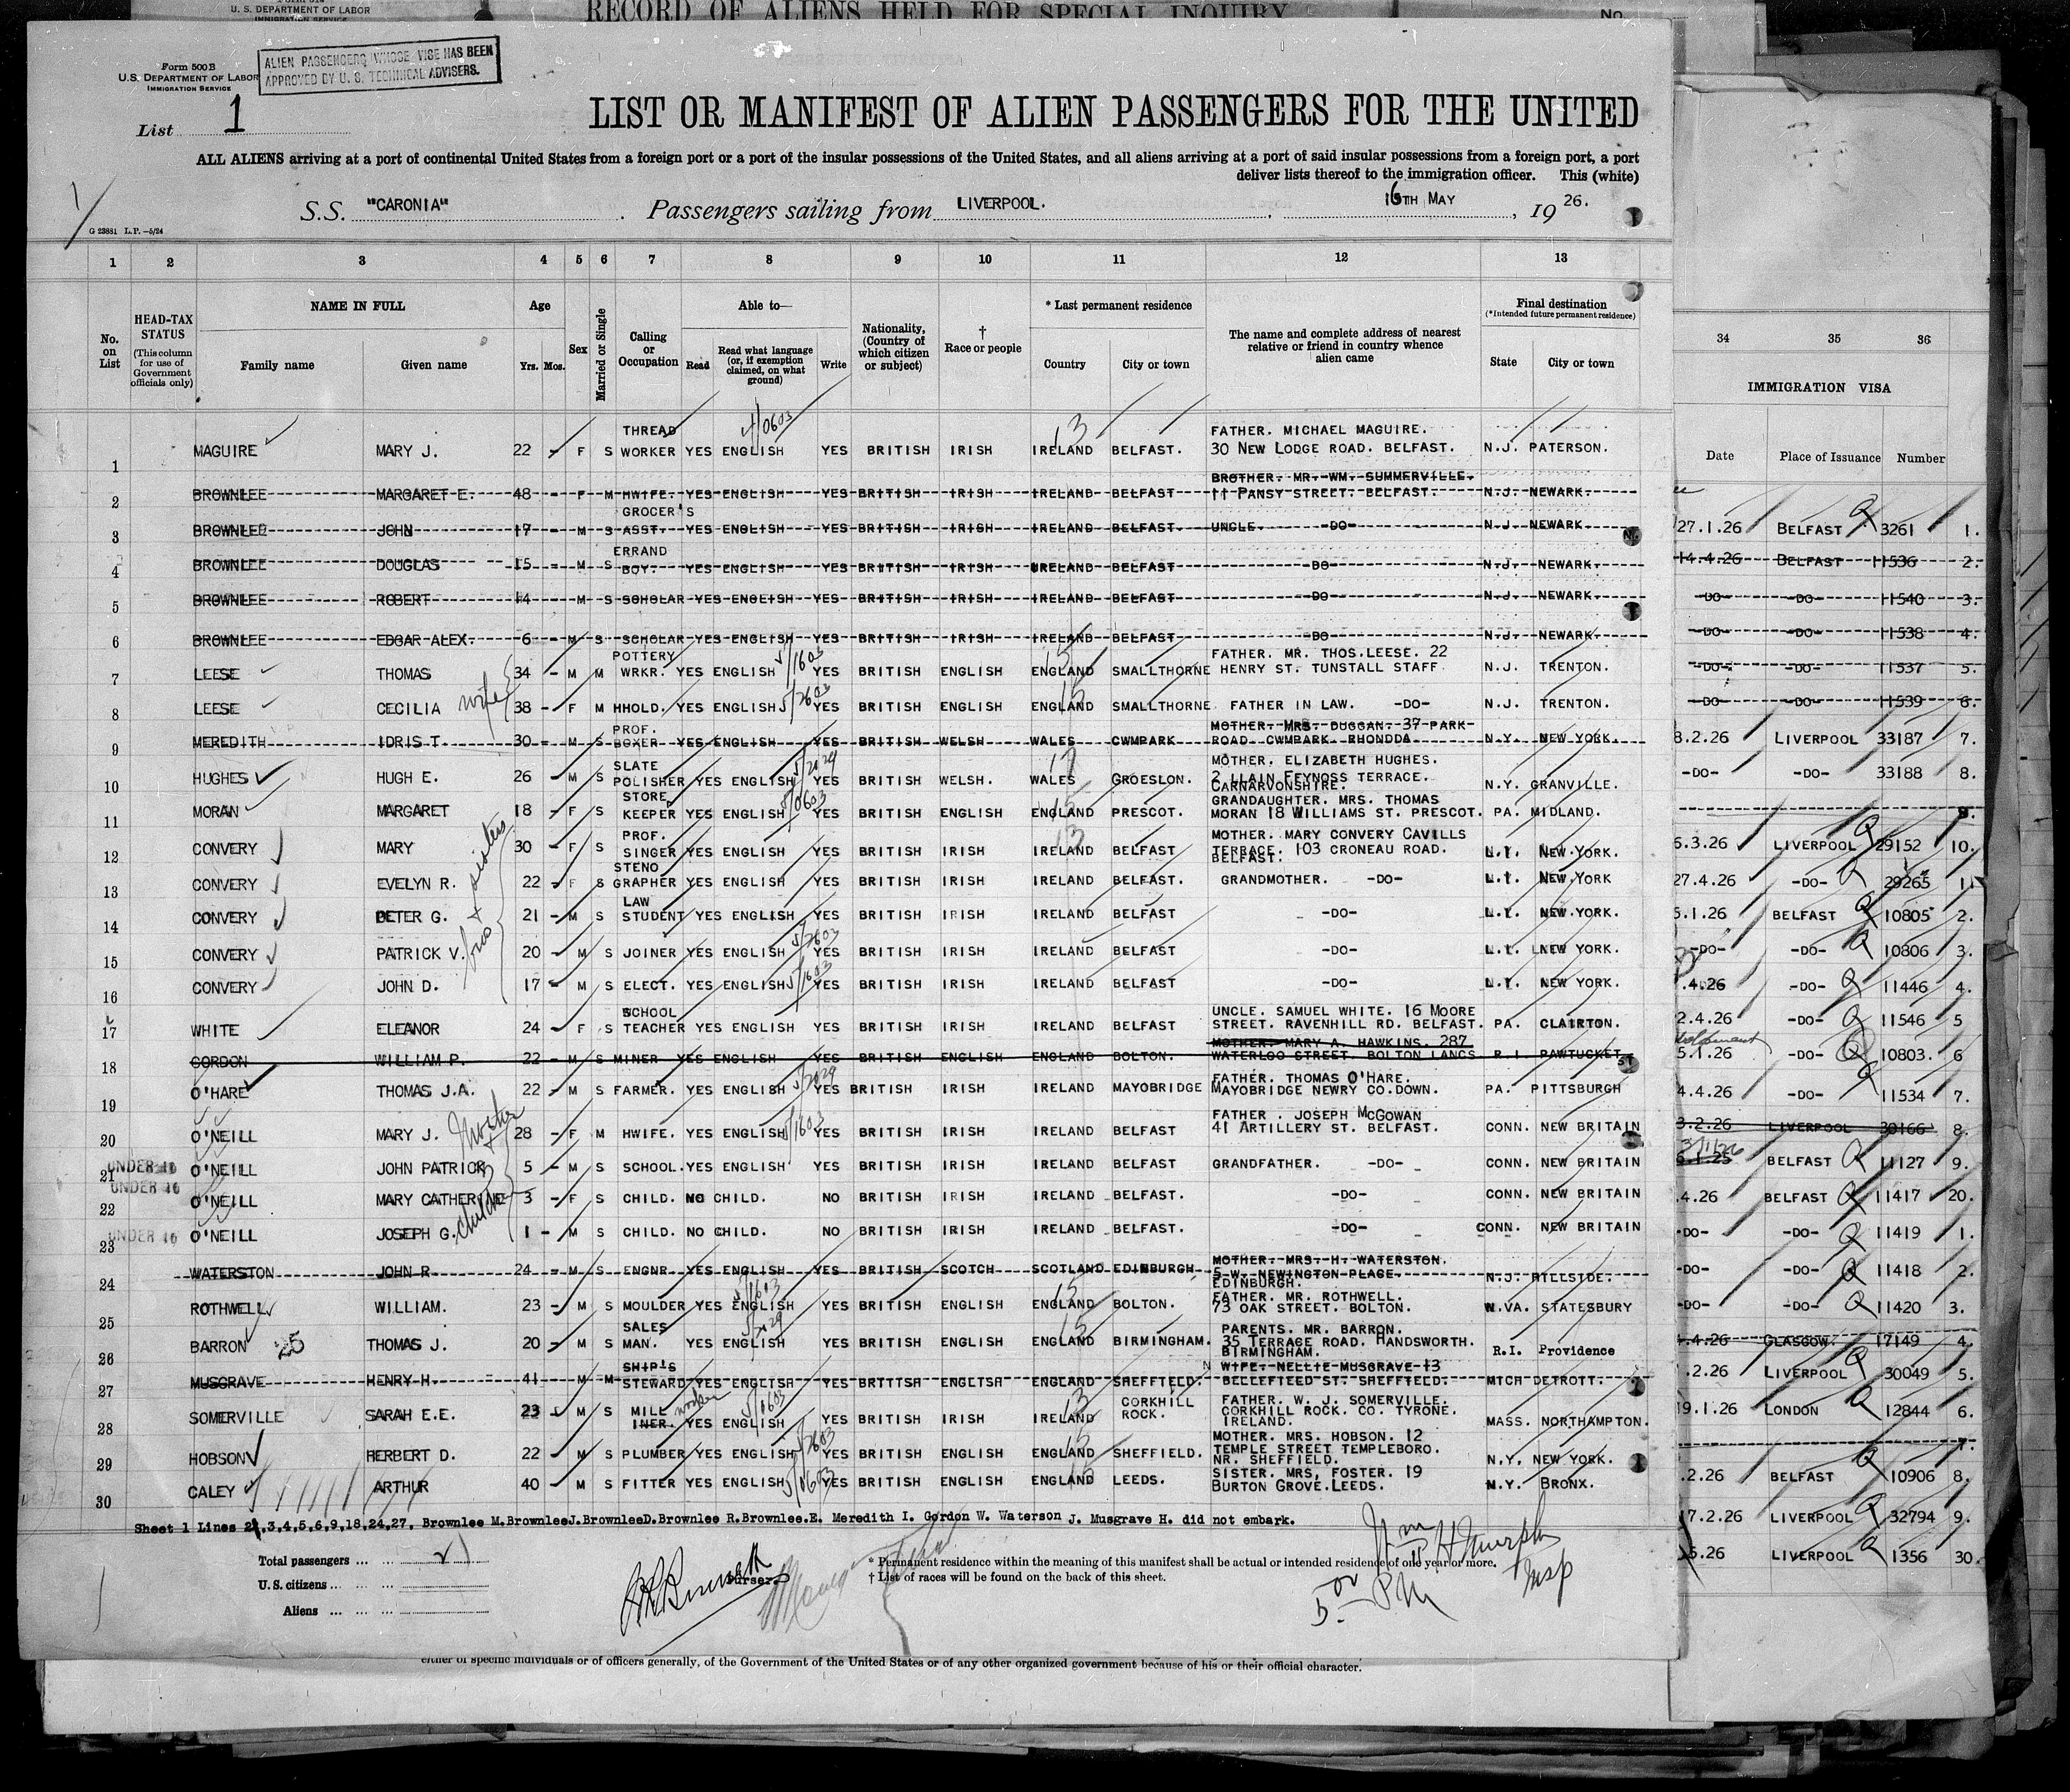 U. S. DEPARTMENT OF LABOR
RECORD OF ALIENS HELD FOR SPECIAL INQUIRY
No.
Form 500 B
U.S. DEPARTMENT OF LABOR
IMMIGRATION SERVICE
ALIEN PASSENGERS WHOSE VISE HAS BEEN
APPROVED BY U. S. TECHNICAL ADVISERS.
List 1
LIST OR MANIFEST OF ALIEN PASSENGERS FOR THE UNITED
ALL ALIENS arriving at a port of continental United States from a foreign port or a port of the insular possessions of the United States, and all aliens arriving at a port of said insular possessions from a foreign port, a port
deliver lists thereof to the immigration officer. This (white)
S.S. "CARONIA" Passengers sailing from LIVERPOOL. 16TH MAY , 19 26.
G 23881 L.P.—5/24
1 2 3 4 5 6 7 8 9 10 11 12 13
No. on List
HEAD-TAX STATUS
(This column for use of Government officials only)
NAME IN FULL
Family name Given name
Age
Yrs. Mos.
Sex
Married or Single
Calling or Occupation
Able to—
Read
Read what language (or, if exemption claimed, on what ground)
Write
Nationality, (Country of which citizen or subject)
† Race or people
* Last permanent residence
Country City or town
The name and complete address of nearest relative or friend in country whence alien came
Final destination
(*Intended future permanent residence)
State City or town
34 35 36
IMMIGRATION VISA
Date Place of Issuance Number
1 MAGUIRE MARY J. 22 - F S THREAD WORKER YES ENGLISH YES BRITISH IRISH IRELAND BELFAST. FATHER. MICHAEL MAGUIRE. 30 NEW LODGE ROAD. BELFAST. N.J. PATERSON.
2 BROWNLEE MARGARET E. 48 - F M HWIFE. YES ENGLISH YES BRITISH IRISH IRELAND BELFAST BROTHER. MR. WM. SUMMERVILLE. 11 PANSY STREET. BELFAST. N.J. NEWARK.
3 BROWNLEE JOHN 17 - M S GROCER'S ASST. YES ENGLISH YES BRITISH IRISH IRELAND BELFAST. UNCLE. -DO- N.J. NEWARK
4 BROWNLEE DOUGLAS 15 - M S ERRAND BOY. YES ENGLISH YES BRITISH IRISH IRELAND BELFAST -DO- N.J. NEWARK.
5 BROWNLEE ROBERT 14 - M S SCHOLAR YES ENGLISH YES BRITISH IRISH IRELAND BELFAST -DO- N.J. NEWARK.
6 BROWNLEE EDGAR ALEX. 6 - M S SCHOLAR YES ENGLISH YES BRITISH IRISH IRELAND BELFAST -DO- N.J. NEWARK.
7 LEESE THOMAS 34 - M M POTTERY WRKR. YES ENGLISH YES BRITISH ENGLISH ENGLAND SMALLTHORNE FATHER. MR. THOS.LEESE. 22 HENRY ST. TUNSTALL STAFF. N.J. TRENTON.
8 LEESE CECILIA wife 38 - F M HHOLD. YES ENGLISH YES BRITISH ENGLISH ENGLAND SMALLTHORNE FATHER IN LAW. -DO- N.J. TRENTON.
9 MEREDITH IDRIS T. 30 - M S PROF. BOXER YES ENGLISH YES BRITISH WELSH WALES CWMPARK MOTHER. MRS. DUGGAN. 37 PARK ROAD CWMPARK RHONDDA N.Y. NEW YORK.
10 HUGHES HUGH E. 26 - M S SLATE POLISHER YES ENGLISH YES BRITISH WELSH. WALES GROESLON. MOTHER. ELIZABETH HUGHES. 2 LLAIN FFYNOSS TERRACE. CARNARVONSHIRE. N.Y. GRANVILLE.
11 MORAN MARGARET 18 - F S STORE KEEPER YES ENGLISH YES BRITISH ENGLISH ENGLAND PRESCOT. GRANDAUGHTER. MRS. THOMAS MORAN 18 WILLIAMS ST. PRESCOT. PA. MIDLAND.
12 CONVERY MARY 30 - F S PROF. SINGER YES ENGLISH YES BRITISH IRISH IRELAND BELFAST MOTHER. MARY CONVERY CAVILLS TERRACE. 103 CRONEAU ROAD. BELFAST. NEW YORK.
13 CONVERY EVELYN R. 22 - F S STENO GRAPHER YES ENGLISH YES BRITISH IRISH IRELAND BELFAST. GRANDMOTHER. -DO- NEW YORK
14 CONVERY PETER G. bros + sisters 21 - M S LAW STUDENT YES ENGLISH YES BRITISH IRISH IRELAND BELFAST -DO- NEW YORK.
15 CONVERY PATRICK V. 20 - M S JOINER YES ENGLISH YES BRITISH IRISH IRELAND BELFAST -DO- NEW YORK.
16 CONVERY JOHN D. 17 - M S ELECT. YES ENGLISH YES BRITISH IRISH IRELAND BELFAST -DO- NEW YORK.
17 WHITE ELEANOR 24 - F S SCHOOL TEACHER YES ENGLISH YES BRITISH IRISH IRELAND BELFAST UNCLE. SAMUEL WHITE. 16 MOORE STREET. RAVENHILL RD. BELFAST. PA. CLAIRTON.
18 GORDON WILLIAM P. 22 - M S MINER YES ENGLISH YES BRITISH ENGLISH ENGLAND BOLTON. MOTHER. MARY A. HAWKINS. 287 WATERLOO STREET. BOLTON LANCS R.I. PAWTUCKET.
19 O'HARE THOMAS J.A. 22 - M S FARMER. YES ENGLISH YES BRITISH IRISH IRELAND MAYOBRIDGE FATHER. THOMAS O'HARE. MAYOBRIDGE NEWRY CO.DOWN. PA. PITTSBURGH
20 O'NEILL MARY J. Mother + 28 - F M HWIFE. YES ENGLISH YES BRITISH IRISH IRELAND BELFAST FATHER. JOSEPH MCGOWAN 41 ARTILLERY ST. BELFAST. CONN. NEW BRITAIN
21 UNDER 16 O'NEILL JOHN PATRICK 5 - M S SCHOOL. YES ENGLISH YES BRITISH IRISH IRELAND BELFAST GRANDFATHER. -DO- CONN. NEW BRITAIN
22 UNDER 16 O'NEILL MARY CATHERINE children 3 - F S CHILD. NO CHILD. NO BRITISH IRISH IRELAND BELFAST. -DO- CONN. NEW BRITAIN
23 UNDER 16 O'NEILL JOSEPH G. 1 - M S CHILD. NO CHILD. NO BRITISH IRISH IRELAND BELFAST. -DO- CONN. NEW BRITAIN
24 WATERSTON JOHN R 24 - M S ENGNR. YES ENGLISH YES BRITISH SCOTCH SCOTLAND EDINBURGH MOTHER. MRS. H. WATERSTON. 5 W. NEWINGTON PLACE. EDINBURGH. N.J. HILLSIDE.
25 ROTHWELL WILLIAM. 23 - M S MOULDER YES ENGLISH YES BRITISH ENGLISH ENGLAND BOLTON. FATHER. MR. ROTHWELL. 73 OAK STREET. BOLTON. W.VA. STATESBURY
26 BARRON 25 THOMAS J. 20 - M S SALES MAN. YES ENGLISH YES BRITISH ENGLISH ENGLAND BIRMINGHAM. PARENTS. MR. BARRON. 35 TERRACE ROAD. HANDSWORTH. BIRMINGHAM. R.I. Providence
27 MUSGRAVE HENRY H. 41 - M M SHIP'S STEWARD YES ENGLISH YES BRITISH ENGLISH ENGLAND SHEFFIELD. WIFE. NELLIE MUSGRAVE 13 BELLEFIELD ST. SHEFFIELD. MICH DETROIT.
28 SOMERVILLE SARAH E.E. 23 M S MILL INER. worker YES ENGLISH YES BRITISH IRISH IRELAND CORKHILL ROCK. FATHER. W. J. SOMERVILLE. CORKHILL ROCK. CO. TYRONE. IRELAND. MASS. NORTHAMPTON.
29 HOBSON HERBERT D. 22 - M S PLUMBER YES ENGLISH YES BRITISH ENGLISH ENGLAND SHEFFIELD. MOTHER. MRS. HOBSON. 12 TEMPLE STREET TEMPLEBORO. NR. SHEFFIELD. N.Y. NEW YORK.
30 CALEY ARTHUR 40 - M S FITTER YES ENGLISH YES BRITISH ENGLISH ENGLAND LEEDS. SISTER. MRS, FOSTER. 19 BURTON GROVE.LEEDS. N.Y. BRONX.
27.1.26 BELFAST 3261 1.
14.4.26 BELFAST 11536 2.
-DO- -DO- 11540 3.
-DO- -DO- 11538 4.
-DO- -DO- 11537 5.
-DO- -DO- 11539 6.
8.2.26 LIVERPOOL 33187 7.
-DO- -DO- 33188 8.
9.
6.3.26 LIVERPOOL 29152 10.
27.4.26 -DO- 29265 11
5.1.26 BELFAST 10805 2.
-DO- -DO- 10806 3.
.4.26 -DO- 11446 4.
2.4.26 -DO- 11546 5
5.1.26 -DO- 10803. 6
4.4.26 -DO- 11534 7.
3.2.26 LIVERPOOL 30166 8.
BELFAST 11127 9.
.4.26 BELFAST 11417 20.
-DO- -DO- 11419 1.
-DO- -DO- 11418 2.
-DO- -DO- 11420 3.
.4.26 GLASGOW. 17149 4.
.2.26 LIVERPOOL 30049 5.
19.1.26 LONDON 12844 6.
7.
.2.26 BELFAST 10906 8.
17.2.26 LIVERPOOL 32794 9.
.5.26 LIVERPOOL 1356 30.
Sheet 1 Lines 2,3,4,5,6,9,18,24,27, Brownlee M.BrownleeJ.BrownleeD.Brownlee R.Brownlee.E. Meredith I. Gordon W. Waterson J. Musgrave H. did not embark.
Total passengers ... ... 21
U.S. citizens ... ...
Aliens ... ...
Purser.
* Permanent residence within the meaning of this manifest shall be actual or intended residence of one year or more.
† List of races will be found on the back of this sheet.
Wm H Murphy
Insp
5 00 PM
either of specific individuals or of officers generally, of the Government of the United States or of any other organized government because of his or their official character.